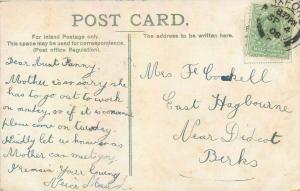 POST CARD.
For Inland Postage only.
This space may be used for correspondence.
(Post Office Regulation).
The address to be written here.
Dear Aunt Fanny,
Mother is so sorry she
has to go out to work
on monday, so if it is convenient
please come on tuesday
kindly let us know so as
Mother can meet you
I remain Your loving
Neice Maud
Mrs F Cockell
East Hagbourne
Near Didcot
Berks